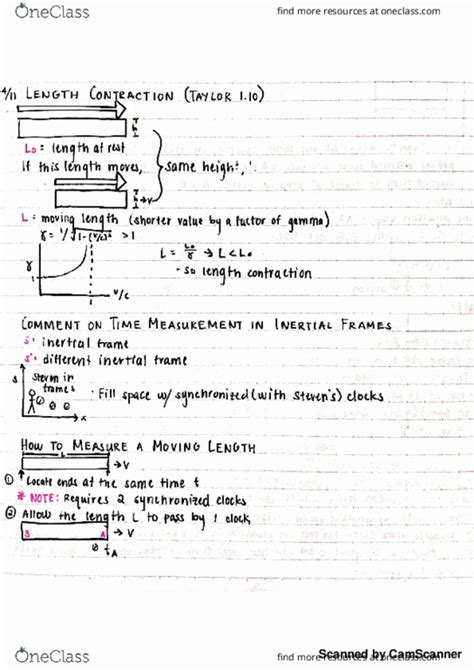 OneClass
find more resources at oneclass.com
4/11 LENGTH CONTRACTION (TAYLOR 1.10)
h
L₀ = length at rest
If this length moves,
same height,
h
→V
L = moving length (shorter value by a factor of gamma)
γ = 1/√1-(v/c)² > 1
L = L₀/γ → L < L₀
- so length contraction
γ
1
v/c
COMMENT ON TIME MEASUREMENT IN INERTIAL FRAMES
S = inertial frame
S' = different inertial frame
S
Steven in frames
· Fill space w/ synchronized (with Steven's) clocks
x
HOW TO MEASURE A MOVING LENGTH
→V
① Locate ends at the same time t
* NOTE: Requires 2 synchronized clocks
② Allow the length L to pass by 1 clock
B A → V
t_A
OneClass
find more resources at oneclass.com
Scanned by CamScanner